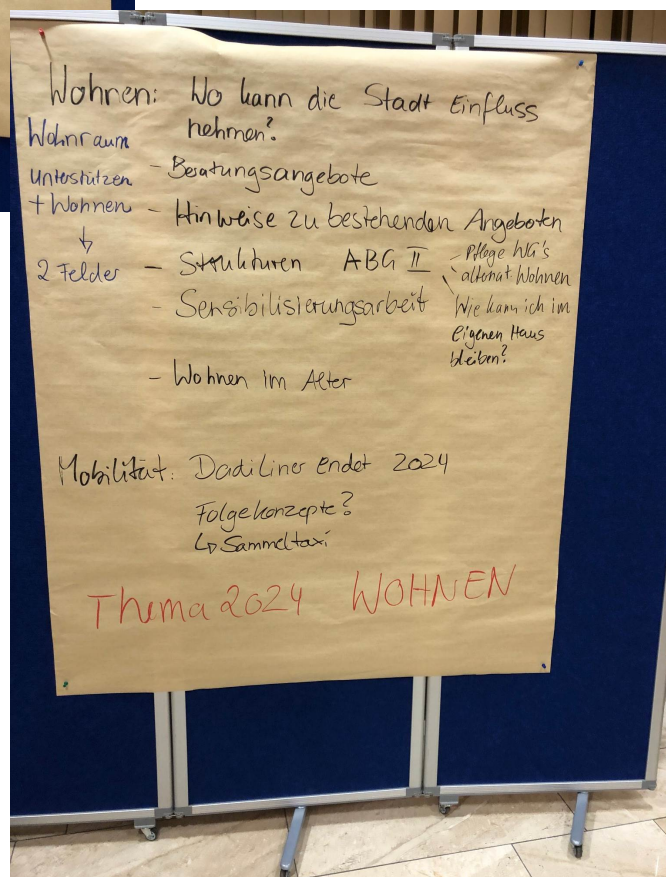 Wohnen: Wo kann die Stadt Einfluss
nehmen?
Wohnraum
unterstützen
+ Wohnen
↓
2 Felder
- Beratungsangebote
- Hinweise zu bestehenden Angeboten
- Strukturen ABG II
- Pflege WG's
- alternat Wohnen
\ Wie kann ich im
eigenen Haus
bleiben?
- Sensibilisierungsarbeit
- Wohnen im Alter
Mobilität: DadiLiner endet 2024
Folgekonzepte?
↳ Sammeltaxi
Thema 2024 WOHNEN